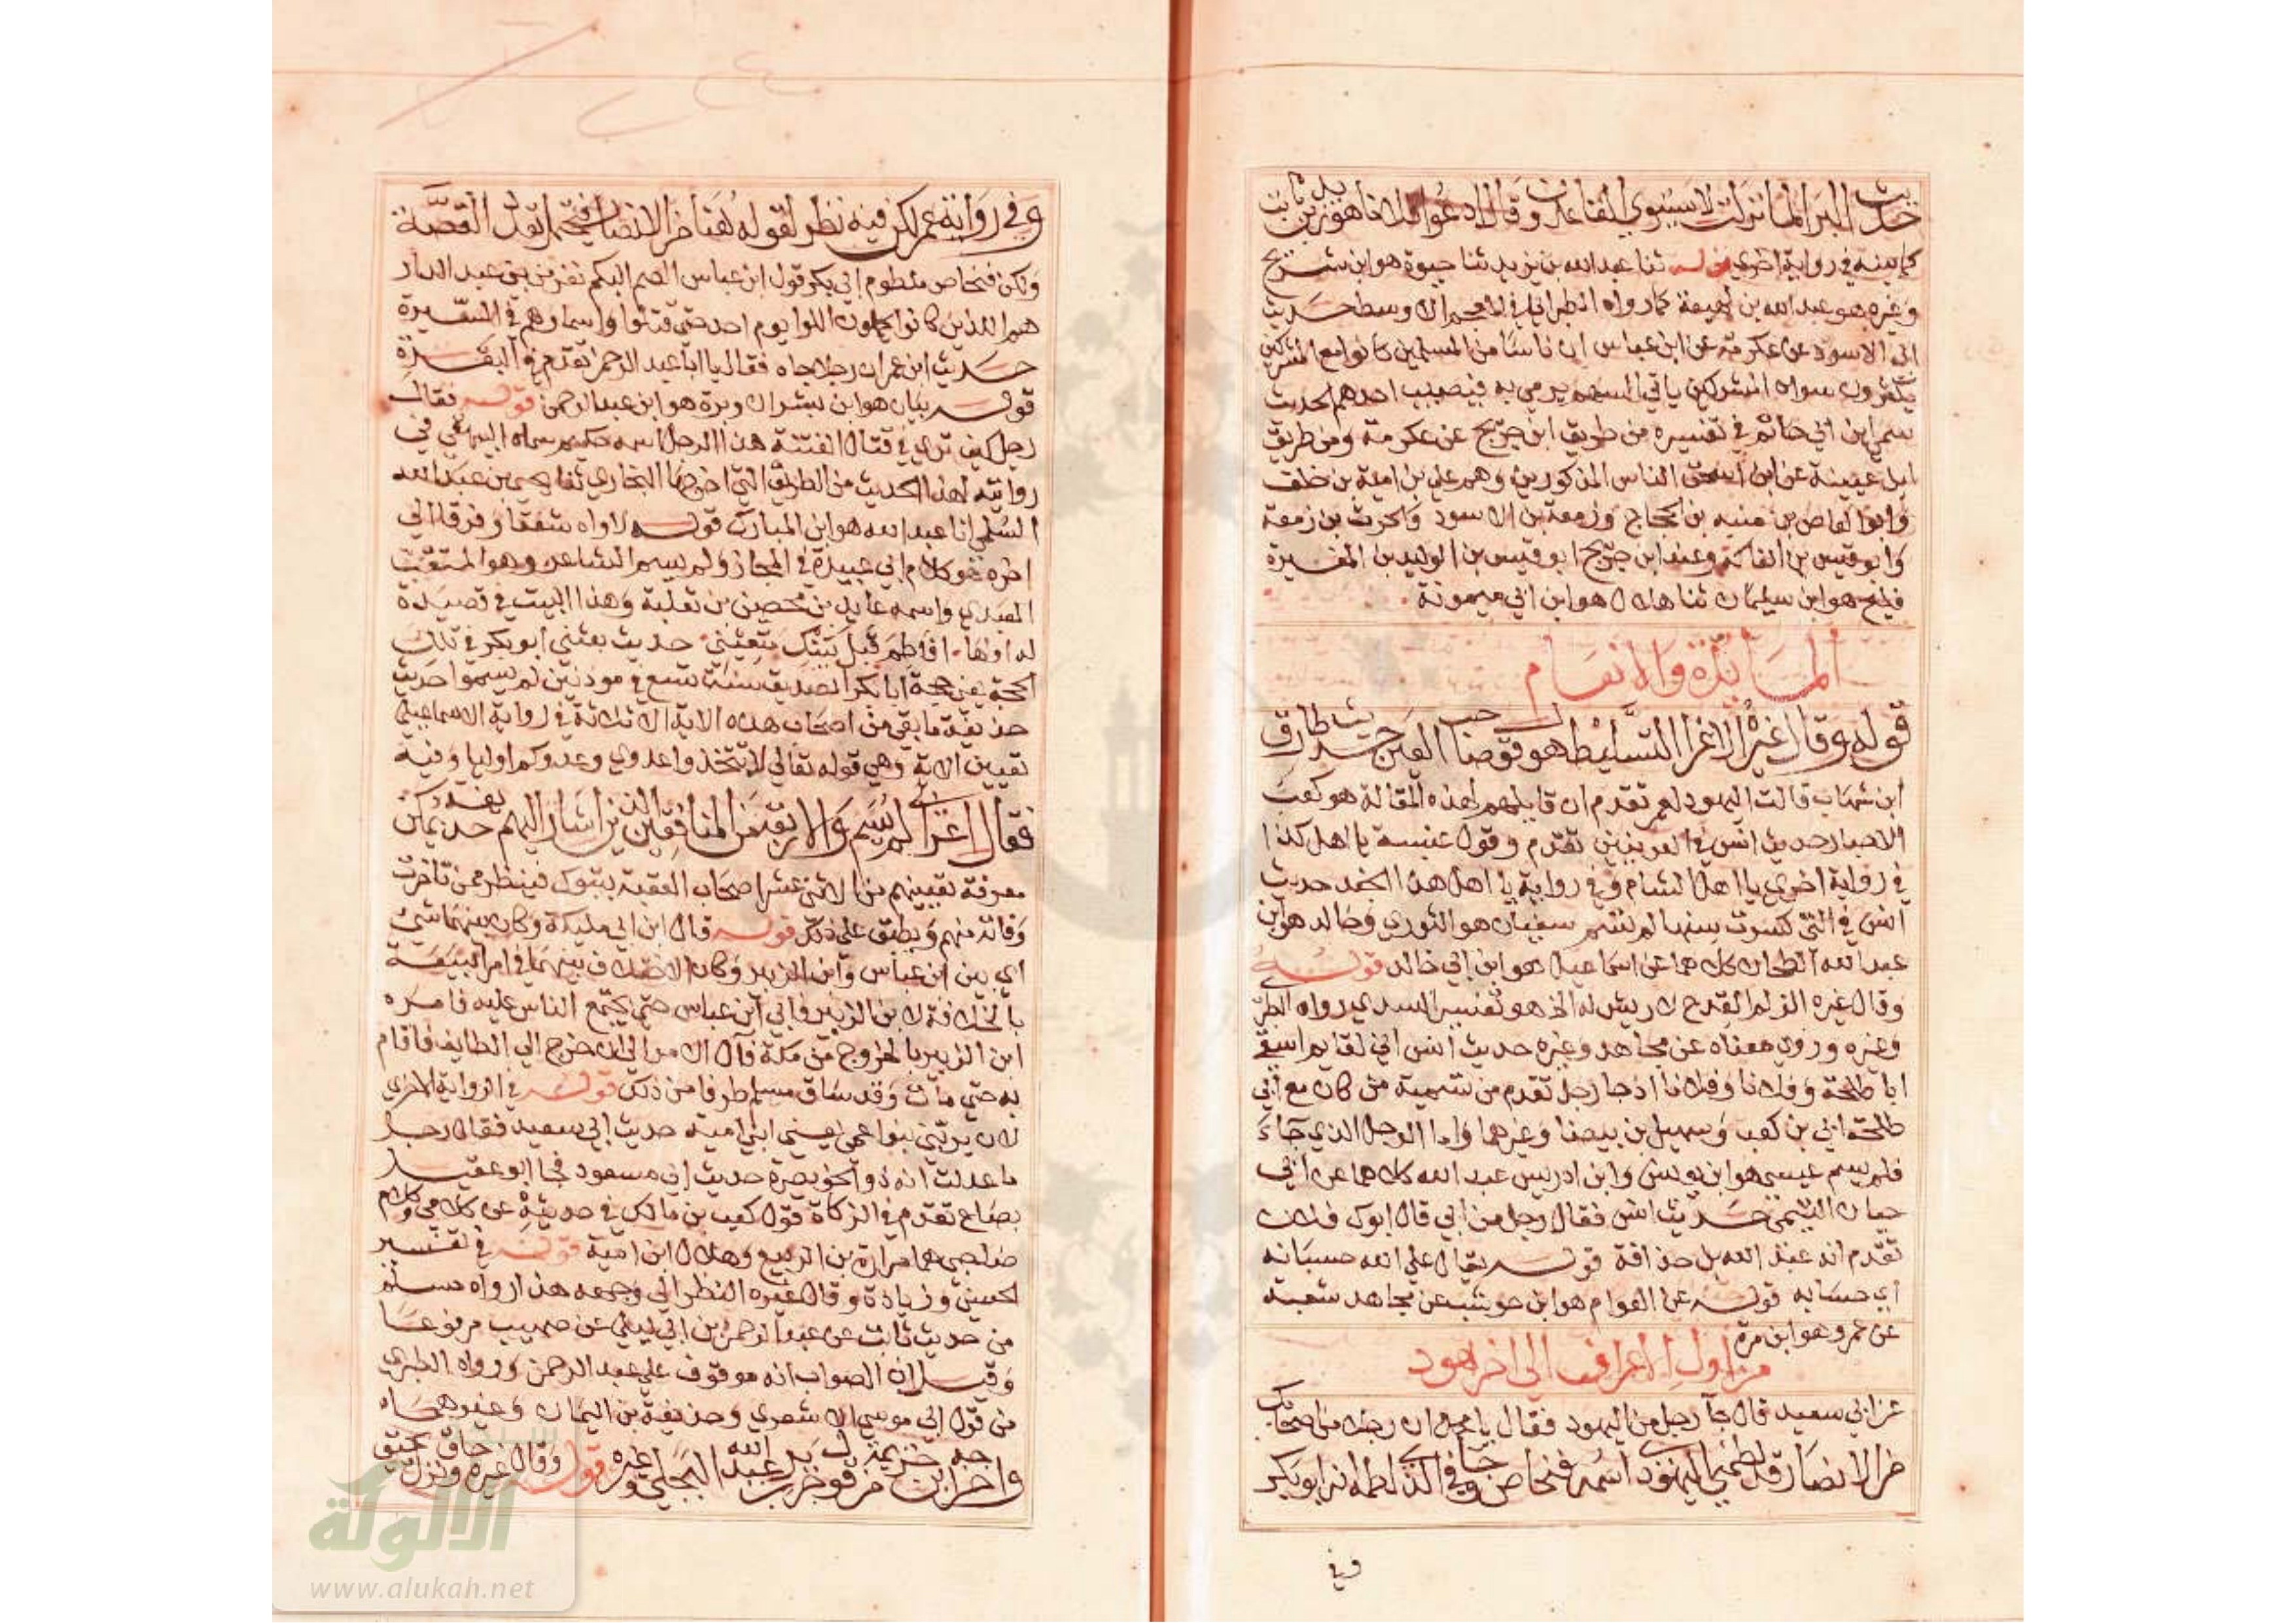 حديث البرا لما نزلت لا يستوي القاعدون وقال ادعوا فلانا هو زيد بن ثابت
كما بينه في رواية اخرى قوله ثنا عبد الله بن يزيد ثنا حيوة هو ابن شريح
وغيره هو عبد الله بن لهيعة كما رواه الطبراني في المعجم الاوسط حديث
ابي الاسود عن عكرمة عن ابن عباس ان ناسا من المسلمين كانوا مع المشركين
يكثرون سواد المشركين ياتي السهم يرمي به فيصيب احدهم الحديث
سمى ابن ابي حاتم في تفسيره من طريق ابن جريج عن عكرمة ومن طريق
ابن عيينة عن ابن اسحق الناس المذكورين وهم علي بن امية بن خلف
وابو العاص بن منبه بن الحجاج وزمعة بن الاسود والحرث بن زمعة
وابو قيس بن الفاكه وعند ابن جريج ابو قيس بن الوليد بن المغيرة
فليح هو ابن سليمان ثنا هلال هو ابن ابي ميمونة
المائدة والانعام
قوله وقال غيره الاغرا التسليط هو قول صاحب العين حديث طارق
ابن شهاب قالت اليهود لعمر تقدم ان قايلهم لهذه المقالة هو كعب
الاحبار حديث انس في العرنيين تقدم وقول عنبسة يا اهل كذا
في رواية اخرى يا اهل الشام وفي رواية يا اهل هذا الجند حديث
انس في التي كسرت سنها لم تسم سفيان هو الثوري وخالد هو ابن
عبد الله الطحان كلاهما عن اسماعيل هو ابن ابي خالد قوله
وقال غيره الزلم القدح لا ريش له الخ هو تفسير السدي رواه الطبر
وغيره وروي معناه عن مجاهد وغيره حديث انس اني لقايم اسقي
ابا طلحة وفلانا وفلانا اذ جا رجل تقدم من تسمية من كان مع ابي
طلحة ابي بن كعب وسهيل بن بيضا وغيرهما واما الرجل الذي جاء
فلم يسم عيسى هو ابن يونس وابن ادريس عبد الله كلاهما عن ابي
حيان التيمي حديث انس فقال رجل من ابي قال ابوك فلان
تقدم انه عبد الله بن حذافة قوله يقال على الله حسبانه
اي حسابه قوله عن العوام هو ابن حوشب عن مجاهد شعبة
عن عمرو هو ابن مرة
من اول الاعراف الى اخر هود
عن ابي سعيد قال جا رجل من اليهود فقال يا محمد ان رجلا من اصحابك
من الانصار قد لطمني اليهودي اسمه فنحاص وفي الذي لطمه انه ابو بكر
وفي
وفي رواية عمر لكن فيه نظر لقوله هنا من الانصار فيحتمل تعدد القصة
ولكن فنحاص ملطوم ابي بكر قول ابن عباس الصم البكم نفر من بني عبد الدار
هم الذين كانوا يحملون اللوا يوم احد حتى قتلوا واسماوهم في السيرة
حديث ابن عمر ان رجلا جاه فقال يا ابا عبد الرحمن تقدم في البقرة
قوله بيان هو ابن بشر ان وبرة هو ابن عبد الرحمن قوله فقال
رجل كيف ترى في قتال الفتنة هذا الرجل اسمه حكيم سماه البيهقي في
روايته لهذا الحديث من الطريق التي اخرجها البخاري ثنا يحيى بن عبد الله
السلمي انا عبد الله هو ابن المبارك قوله لاواه شفقا وفرقا الى
اخره هو كلام ابي عبيدة في المجاز ولم يسم الشاعر وهو المثقب
العبدي واسمه عايذ بن محصن بن ثعلبة وهذا البيت في قصيدة
له اولها افاطم قبل بينك متعيني حديث بعثني ابو بكر في تلك
الحجة يعني حجة ابا بكر الصديق سنة تسع في موذنين لم يسموا حديث
حذيفة ما بقي من اصحاب هذه الاية الا ثلاثة في رواية الاسماعيلي
تعيين الاية وهي قوله تعالى لا تتخذوا عدوي وعدوكم اوليا وفيه
فقال اعرابي لم يسم والاربعة من المنافقين الذين اشار اليهم حذيفة يمكن
معرفة تعيينهم من الاثني عشر اصحاب العقبة بتبوك فينظر من تاخرت
وفاته منهم ويطبق على ذلك قوله قال ابن ابي مليكة وكان بينهما شي
اي بين ابن عباس وابن الزبير وكان الاختلاف بينهما في امر البيعة
بالخلافة لابن الزبير فابى ابن عباس حتى يجتمع الناس عليه فامره
ابن الزبير بالخروج من مكة فآل الامر الى ان خرج الى الطايف فاقام
به حتى مات وقد ساق مسلم طرفا من ذلك قوله في الرواية الاخرى
لان يربني بنوا عمي يعني ابني امية حديث ابي سعيد فقال رجل
ما عدلت انه ذو الخويصرة حديث ابي مسعود فجا ابو عقيل
بصاع تقدم في الزكاة قول كعب بن مالك في حديثه عن كلامي وكلام
صاحبي هما مرارة بن الربيع وهلال ابن امية قوله في تفسير
الحسنى وزيادة وقال غيره النظر الى وجهه هذا رواه مسلم
من حديث ثابت عن عبد الرحمن بن ابي ليلى عن صهيب مرفوعا
وقيل ان الصواب انه موقوف على عبد الرحمن ورواه الطبري
من قول ابي موسى الاشعري وحذيفة بن اليمان وغيرهما
واخرجه ابن خزيمة من قول جرير بن عبد الله البجلي وغيره قوله وقال غيره وحاق نزل يحيق
الالوكة
www.alukah.net